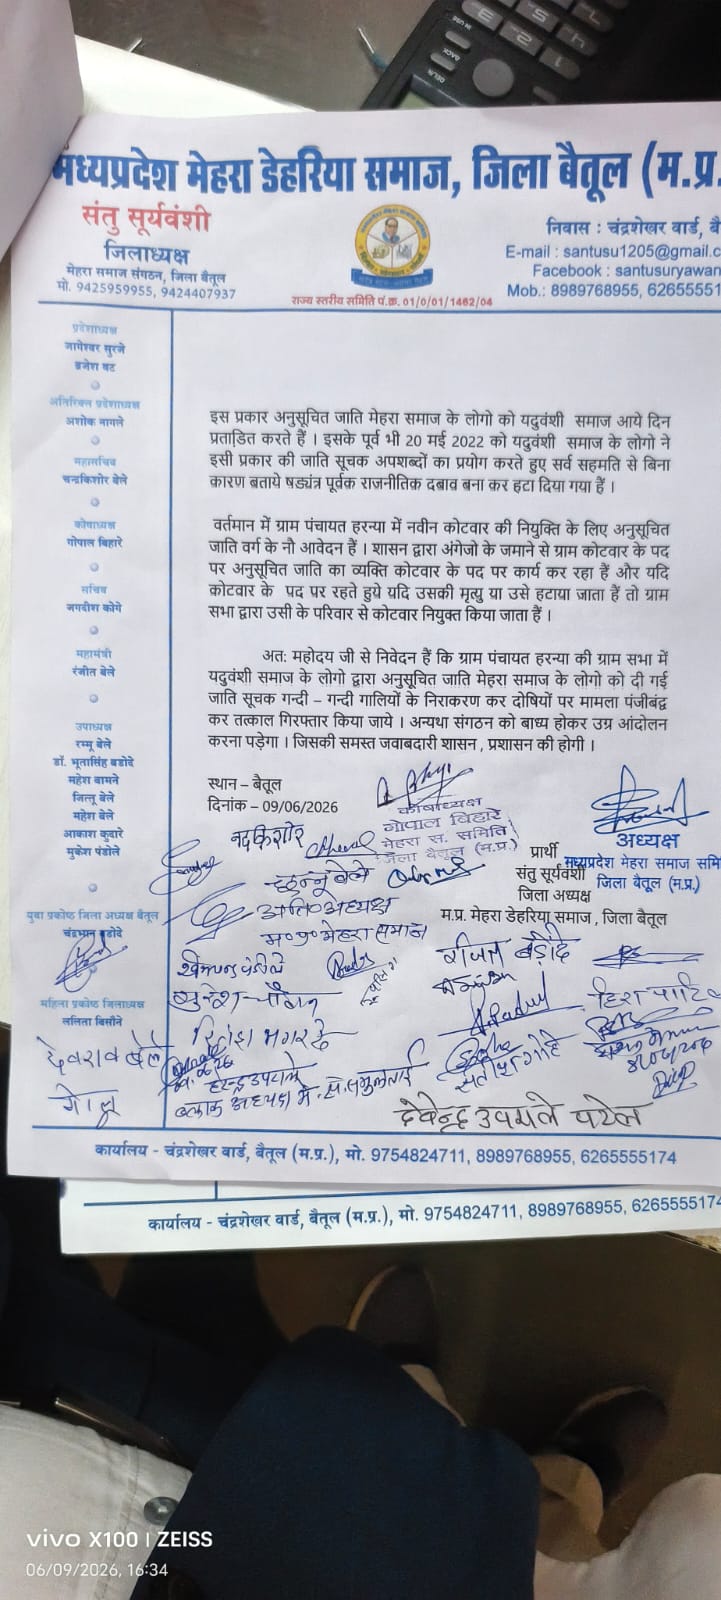 मध्यप्रदेश मेहरा डेहरिया समाज, जिला बैतूल (म.प्र.
संतु सूर्यवंशी
जिलाध्यक्ष
मेहरा समाज संगठन, जिला बैतूल
मो. 9425959955, 9424407937
राज्य स्तरीय समिति पं.क्र. 01/0/01/1462/04
निवास : चंद्रशेखर वार्ड, बै
E-mail : santusu1205@gmail.c
Facebook : santusuryawan
Mob.: 8989768955, 62655551
प्रदेशाध्यक्ष
जागेश्वर सुरजे
ब्रजेश षट
अतिरिक्त प्रदेशाध्यक्ष
अशोक नागले
महासचिव
चन्द्रकिशोर बेले
कोषाध्यक्ष
गोपाल बिहारे
सचिव
जगदीश कोगे
महामंत्री
रंजीत बेले
उपाध्यक्ष
रम्मू बेले
डॉ. भूतासिंह बडोदे
महेश बामने
जित्तू बेले
महेश बेले
आकाश कुवारे
मुकेश पंडोले
युवा प्रकोष्ठ जिला अध्यक्ष बैतूल
चंद्रभान बडोदे
महिला प्रकोष्ठ जिलाध्यक्ष
ललिता बिसौने
इस प्रकार अनुसूचित जाति मेहरा समाज के लोगो को यदुवंशी समाज आये दिन
प्रताडित करते हैं । इसके पूर्व भी 20 मई 2022 को यदुवंशी समाज के लोगो ने
इसी प्रकार की जाति सूचक अपशब्दों का प्रयोग करते हुए सर्व सहमति से बिना
कारण बताये षड्यंत्र पूर्वक राजनीतिक दबाव बना कर हटा दिया गया हैं ।
वर्तमान में ग्राम पंचायत हरन्या में नवीन कोटवार की नियुक्ति के लिए अनुसूचित
जाति वर्ग के नौ आवेदन हैं । शासन द्वारा अंगेजो के जमाने से ग्राम कोटवार के पद
पर अनुसूचित जाति का व्यक्ति कोटवार के पद पर कार्य कर रहा हैं और यदि
कोटवार के पद पर रहते हुये यदि उसकी मृत्यु या उसे हटाया जाता हैं तो ग्राम
सभा द्वारा उसी के परिवार से कोटवार नियुक्त किया जाता हैं ।
अत: महोदय जी से निवेदन हैं कि ग्राम पंचायत हरन्या की ग्राम सभा में
यदुवंशी समाज के लोगो द्वारा अनुसूचित जाति मेहरा समाज के लोगो को दी गई
जाति सूचक गन्दी – गन्दी गालियों के निराकरण कर दोषियों पर मामला पंजीबंद्व
कर तत्काल गिरफ्तार किया जाये । अन्यथा संगठन को बाध्य होकर उग्र आंदोलन
करना पड़ेगा । जिसकी समस्त जवाबदारी शासन , प्रशासन की होगी ।
स्थान – बैतूल
दिनांक – 09/06/2026
कोषाध्यक्ष
गोपाल बिहारे
मेहरा स. समिति
जिला बैतूल (म.प्र.)
अध्यक्ष
मध्यप्रदेश मेहरा समाज समि
जिला बैतूल (म.प्र.)
प्रार्थी
संतु सूर्यवंशी
जिला अध्यक्ष
म.प्र. मेहरा डेहरिया समाज , जिला बैतूल
नदकिशोर
छन्नू बेले
अध्यक्ष
म०प्र० मेहरा समाज
देवराव बेले
गोलू
देवेन्द्र उपराले पटेल
कार्यालय - चंद्रशेखर वार्ड, बैतूल (म.प्र.), मो. 9754824711, 8989768955, 6265555174
कार्यालय - चंद्रशेखर वार्ड, बैतूल (म.प्र.), मो. 9754824711, 8989768955, 6265555174
vivo X100 | ZEISS
06/09/2026, 16:34